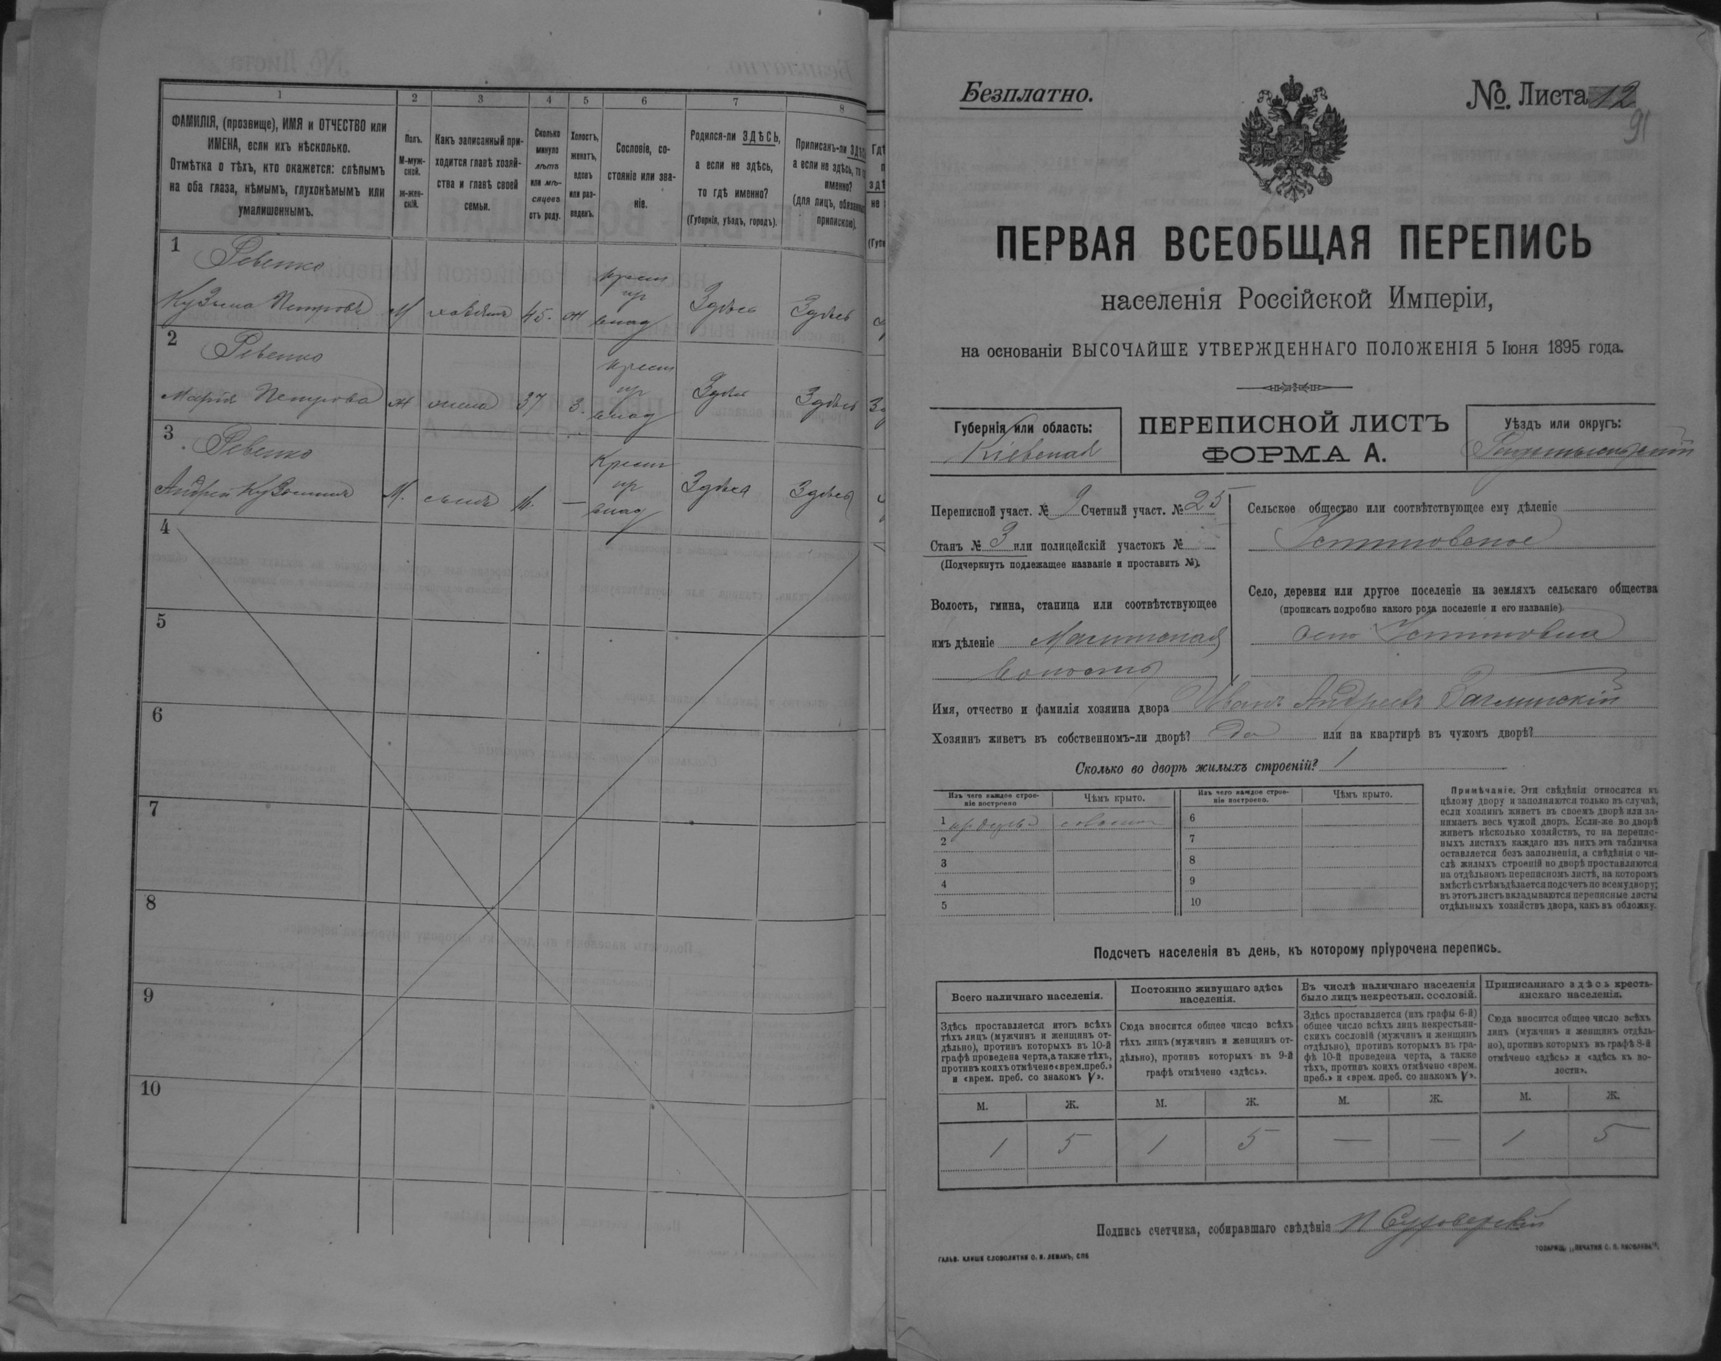 1 2 3 4 5 6 7 8
ФАМИЛІЯ, (прозвище), ИМЯ и ОТЧЕСТВО или
ИМЕНА, если ихъ нѣсколько.
Отмѣтка о тѣхъ, кто окажется: слѣпымъ
на оба глаза, нѣмымъ, глухонѣмымъ или
умалишеннымъ.
Полъ.
М-муж-
ской.
ж-жен-
скій.
Какъ записанный при-
ходится главѣ хозяй-
ства и главѣ своей
семьи.
Сколько
минуло
лѣтъ
или мѣ-
сяцевъ
отъ роду.
Холостъ,
женатъ,
вдовъ
или раз-
веденъ.
Сословіе, со-
стояніе или зва-
ніе.
Родился-ли ЗДѢСЬ,
а если не здѣсь,
то гдѣ именно?
(Губернія, уѣздъ, городъ).
Приписанъ-ли
а если не здѣсь,
именно?
(для лицъ,
припискою).
1
Ревенко
Кузьма Петровъ М хозяинъ 45. ж крест пр влад Здѣсь Здѣсь
2
Ревенко
Марія Петрова ж жена 37 з. крест пр влад Здѣсь Здѣсь
3
Ревенко
Андрей Кузьминъ М. сынъ — крест пр влад Здѣсь Здѣсь
4
5
6
7
8
9
10
Безплатно.
№. Листа 12
91
ПЕРВАЯ ВСЕОБЩАЯ ПЕРЕПИСЬ
населенія Россійской Имперіи,
на основаніи ВЫСОЧАЙШЕ УТВЕРЖДЕННАГО ПОЛОЖЕНІЯ 5 Іюня 1895 года.
Губернія или область:
Кіевская
ПЕРЕПИСНОЙ ЛИСТЪ
ФОРМА А.
Уѣздъ или округъ:
Переписной участ. № 9 Счетный участ. № 25
Станъ № 3 или полицейскій участокъ №
(Подчеркнуть подлежащее названіе и проставить №).
Волость, гмина, станица или соотвѣтствующее
имъ дѣленіе
волость
Сельское общество или соотвѣтствующее ему дѣленіе
Устиновское
Село, деревня или другое поселеніе на земляхъ сельскаго общества
(прописать подробно какого рода поселеніе и его названіе)
Устиновка
Имя, отчество и фамилія хозяина двора Иванъ Андреевъ
Хозяинъ живетъ въ собственномъ-ли дворѣ? Да или на квартирѣ въ чужомъ дворѣ?
Сколько во дворѣ жилыхъ строеній? 1
Изъ чего каждое строе-
ніе построено
Чѣмъ крыто.
Изъ чего каждое строе-
ніе построено.
Чѣмъ крыто.
1 соломой
2
3
4
5
6
7
8
9
10
Примѣчаніе. Эти свѣдѣнія относятся къ
цѣлому двору и заполняются только въ случаѣ,
если хозяинъ живетъ въ своемъ дворѣ или за-
нимаетъ весь чужой дворъ. Если-же во дворѣ
живетъ нѣсколько хозяйствъ, то на перепис-
ныхъ листахъ каждаго изъ нихъ эта табличка
оставляется безъ заполненія, а свѣдѣнія о чи-
слѣ жилыхъ строеній во дворѣ проставляются
на отдѣльномъ переписномъ листѣ, на которомъ
вмѣстѣ съ тѣмъ дѣлается подсчетъ по всему двору;
въ этотъ листъ вкладываются переписные листы
отдѣльныхъ хозяйствъ двора, какъ въ обложку.
Подсчетъ населенія въ день, къ которому пріурочена перепись.
Всего наличнаго населенія.
Постоянно живущаго здѣсь
населенія.
Въ числѣ наличнаго населенія
было лицъ некрестьян. сословій.
Приписаннаго здѣсь кресть-
янскаго населенія.
Здѣсь проставляется итогъ всѣхъ
тѣхъ лицъ (мужчинъ и женщинъ от-
дѣльно), противъ которыхъ въ 10-й
графѣ проведена черта, а также тѣхъ,
противъ коихъ отмѣчено «врем. преб.»
и «врем. преб. со знакомъ V».
Сюда вносится общее число всѣхъ
тѣхъ лицъ (мужчинъ и женщинъ от-
дѣльно), противъ которыхъ въ 9-й
графѣ отмѣчено «здѣсь».
Здѣсь проставляется (изъ графы 6-й)
общее число всѣхъ лицъ некрестьян-
скихъ сословій (мужчинъ и женщинъ
отдѣльно), противъ которыхъ въ гра-
фѣ 10-й проведена черта, а также
тѣхъ, противъ коихъ отмѣчено «врем.
преб.» и «врем. преб. со знакомъ V».
Сюда вносится общее число всѣхъ
лицъ (мужчинъ и женщинъ отдѣль-
но), противъ которыхъ въ графѣ 8-й
отмѣчено «здѣсь» и «здѣсь къ во-
лости».
М. Ж. М. Ж. М. Ж. М. Ж.
1 5 1 5 — — 1 5
Подпись счетчика, собиравшаго свѣдѣнія
ГАЛЬВ. КЛИШЕ СЛОВОЛИТНИ О. И. ЛЕМАНЪ, СПБ
ТОВАРИЩ. „ПЕЧАТНЯ С. П. ЯКОВЛЕВА“.